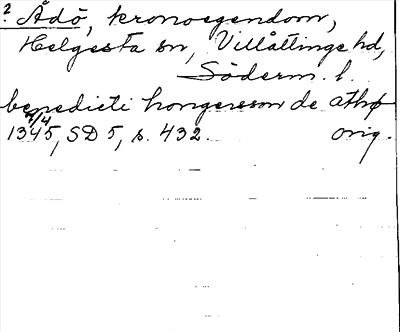 ? Ådö, kronoegendom,
Helgesta sn, Villåttinge hd,
Söderm. l.
benedicti hongersson de athø
1345 4/4, SD 5, s. 432. orig.